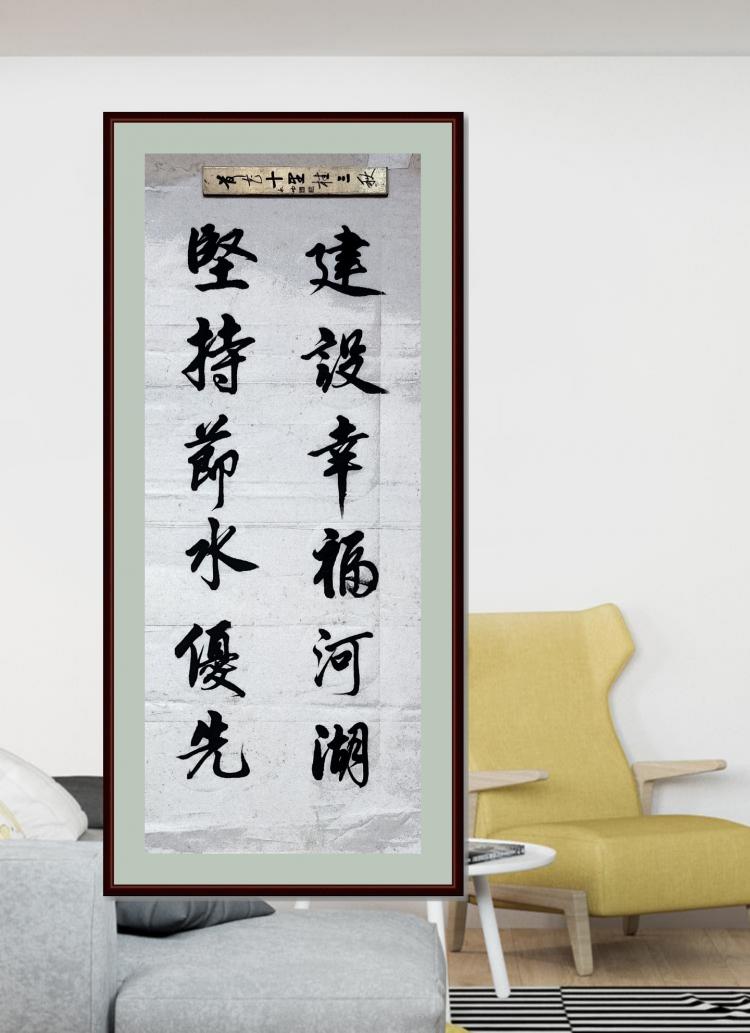 建設幸福河湖
堅持節水優先